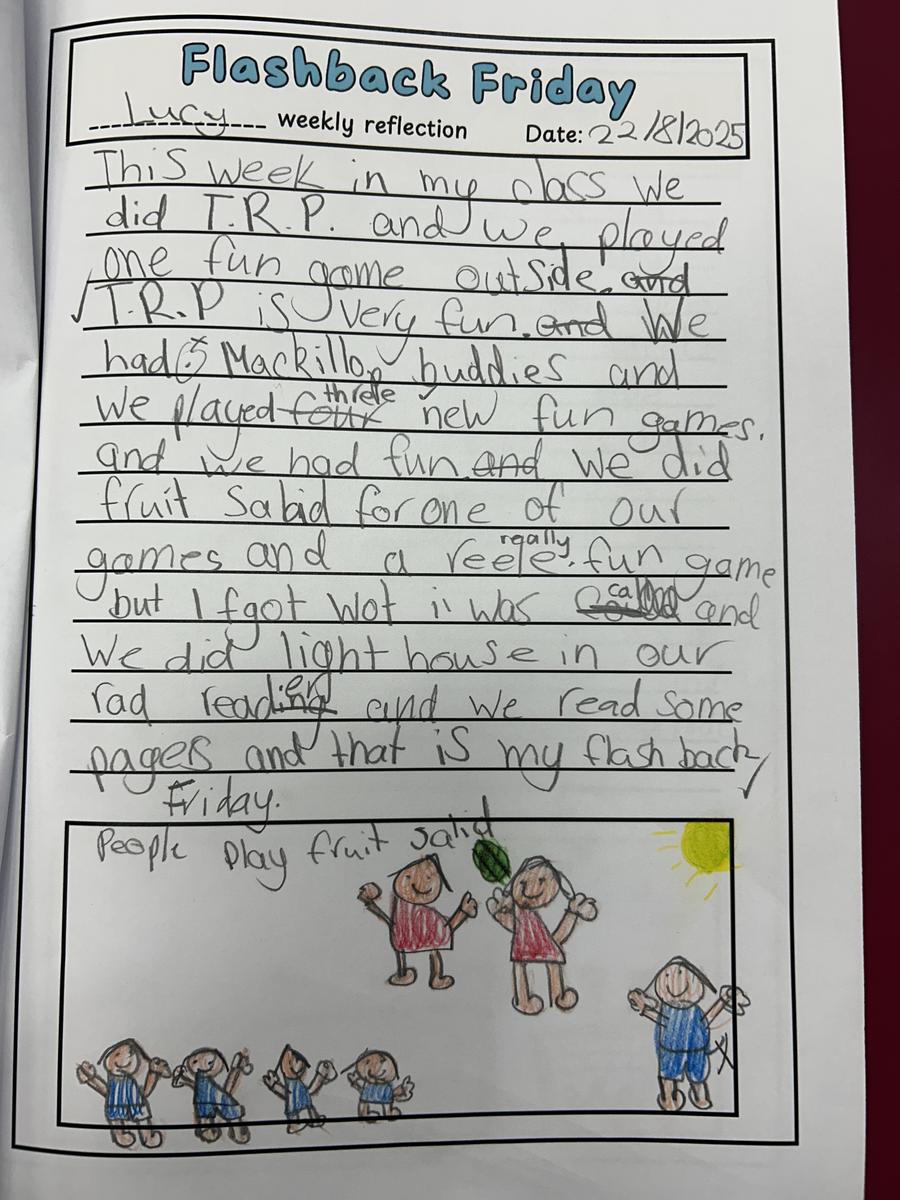 Flashback Friday
Lucy weekly reflection Date: 22/8/2025
This week in my class we
did T.R.P. and we played
one fun game outside. and
T.R.P is very fun. and We
had Mackillop buddies and
we played four three new fun games.
and we had fun and we did
fruit Salad for one of our
games and a reele. really fun game
but I fgot wot it was called and
We did light house in our
rad reading er and we read some
pages and that is my flash back
Friday.
People Play fruit salid